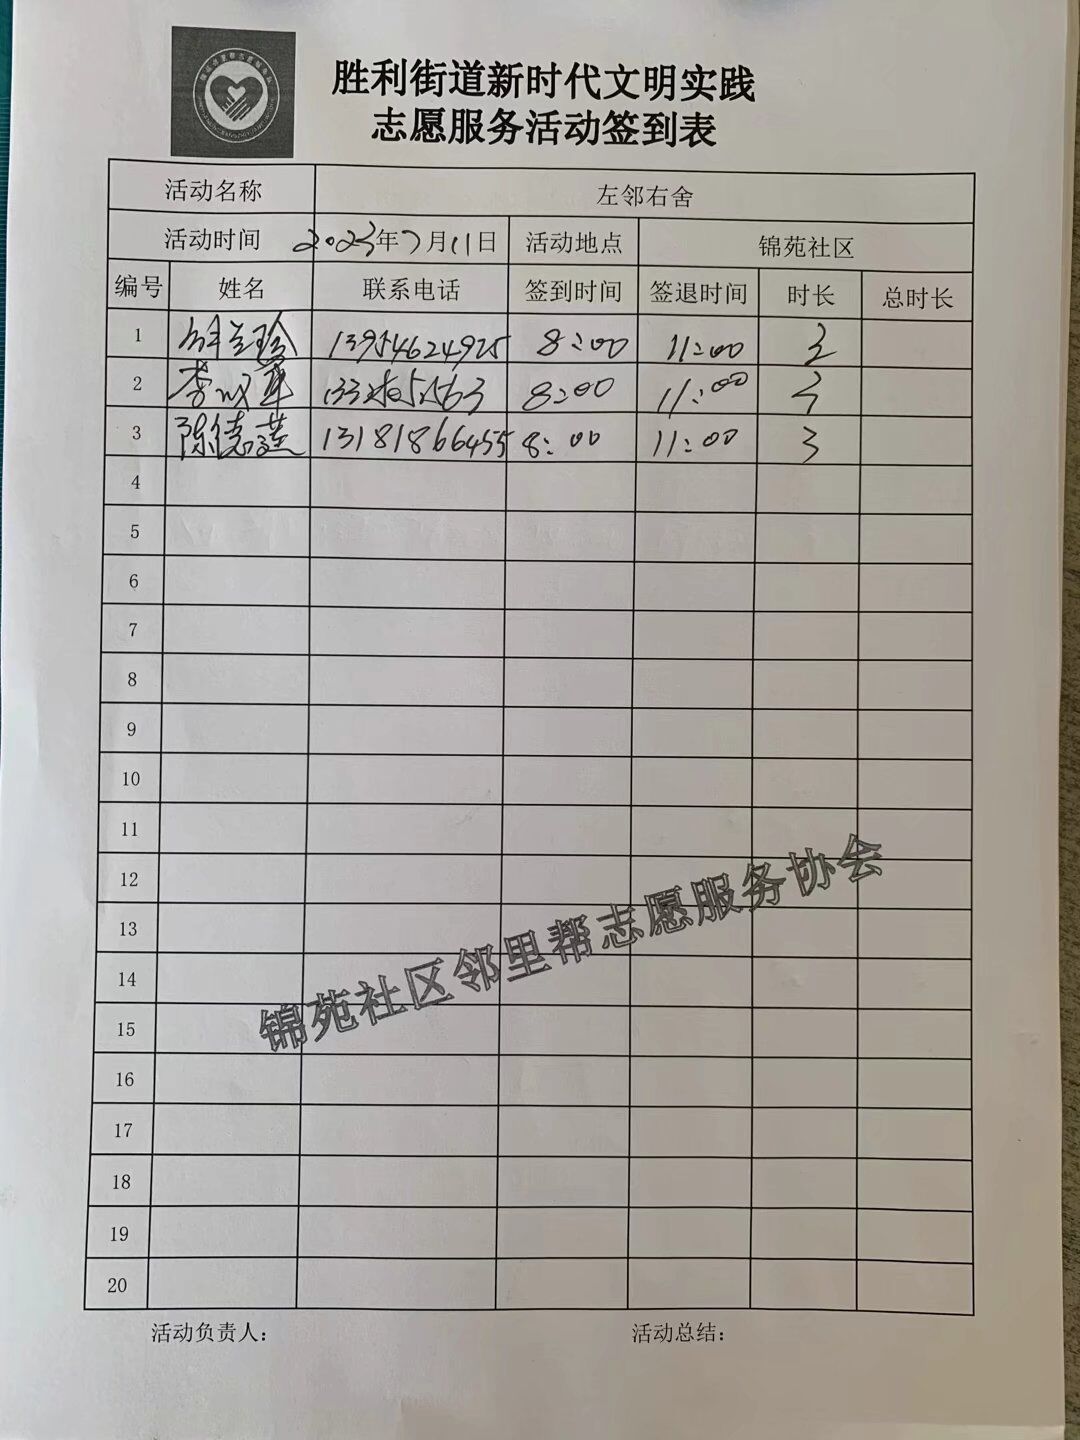 胜利街道新时代文明实践
志愿服务活动签到表
活动名称 左邻右舍
活动时间 2023年7月11日 活动地点 锦苑社区
编号 姓名 联系电话 签到时间 签退时间 时长 总时长
1 13954624925 8:00 11:00 3
2 8:00 11:00 3
3 陈德莲 13181866455 8:00 11:00 3
4
5
6
7
8
9
10
11
12
13
14
15
16
17
18
19
20
锦苑社区邻里帮志愿服务协会
活动负责人: 活动总结: